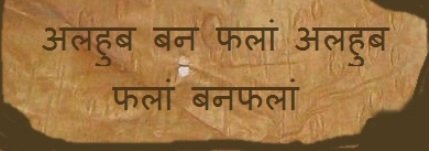 अलहुब बन फलां अलहुब
फलां बनफलां